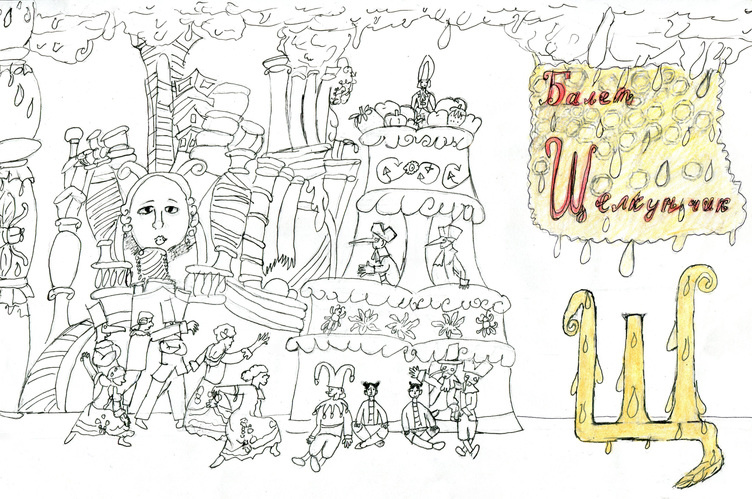 Балет
Щелкунчик
Щ